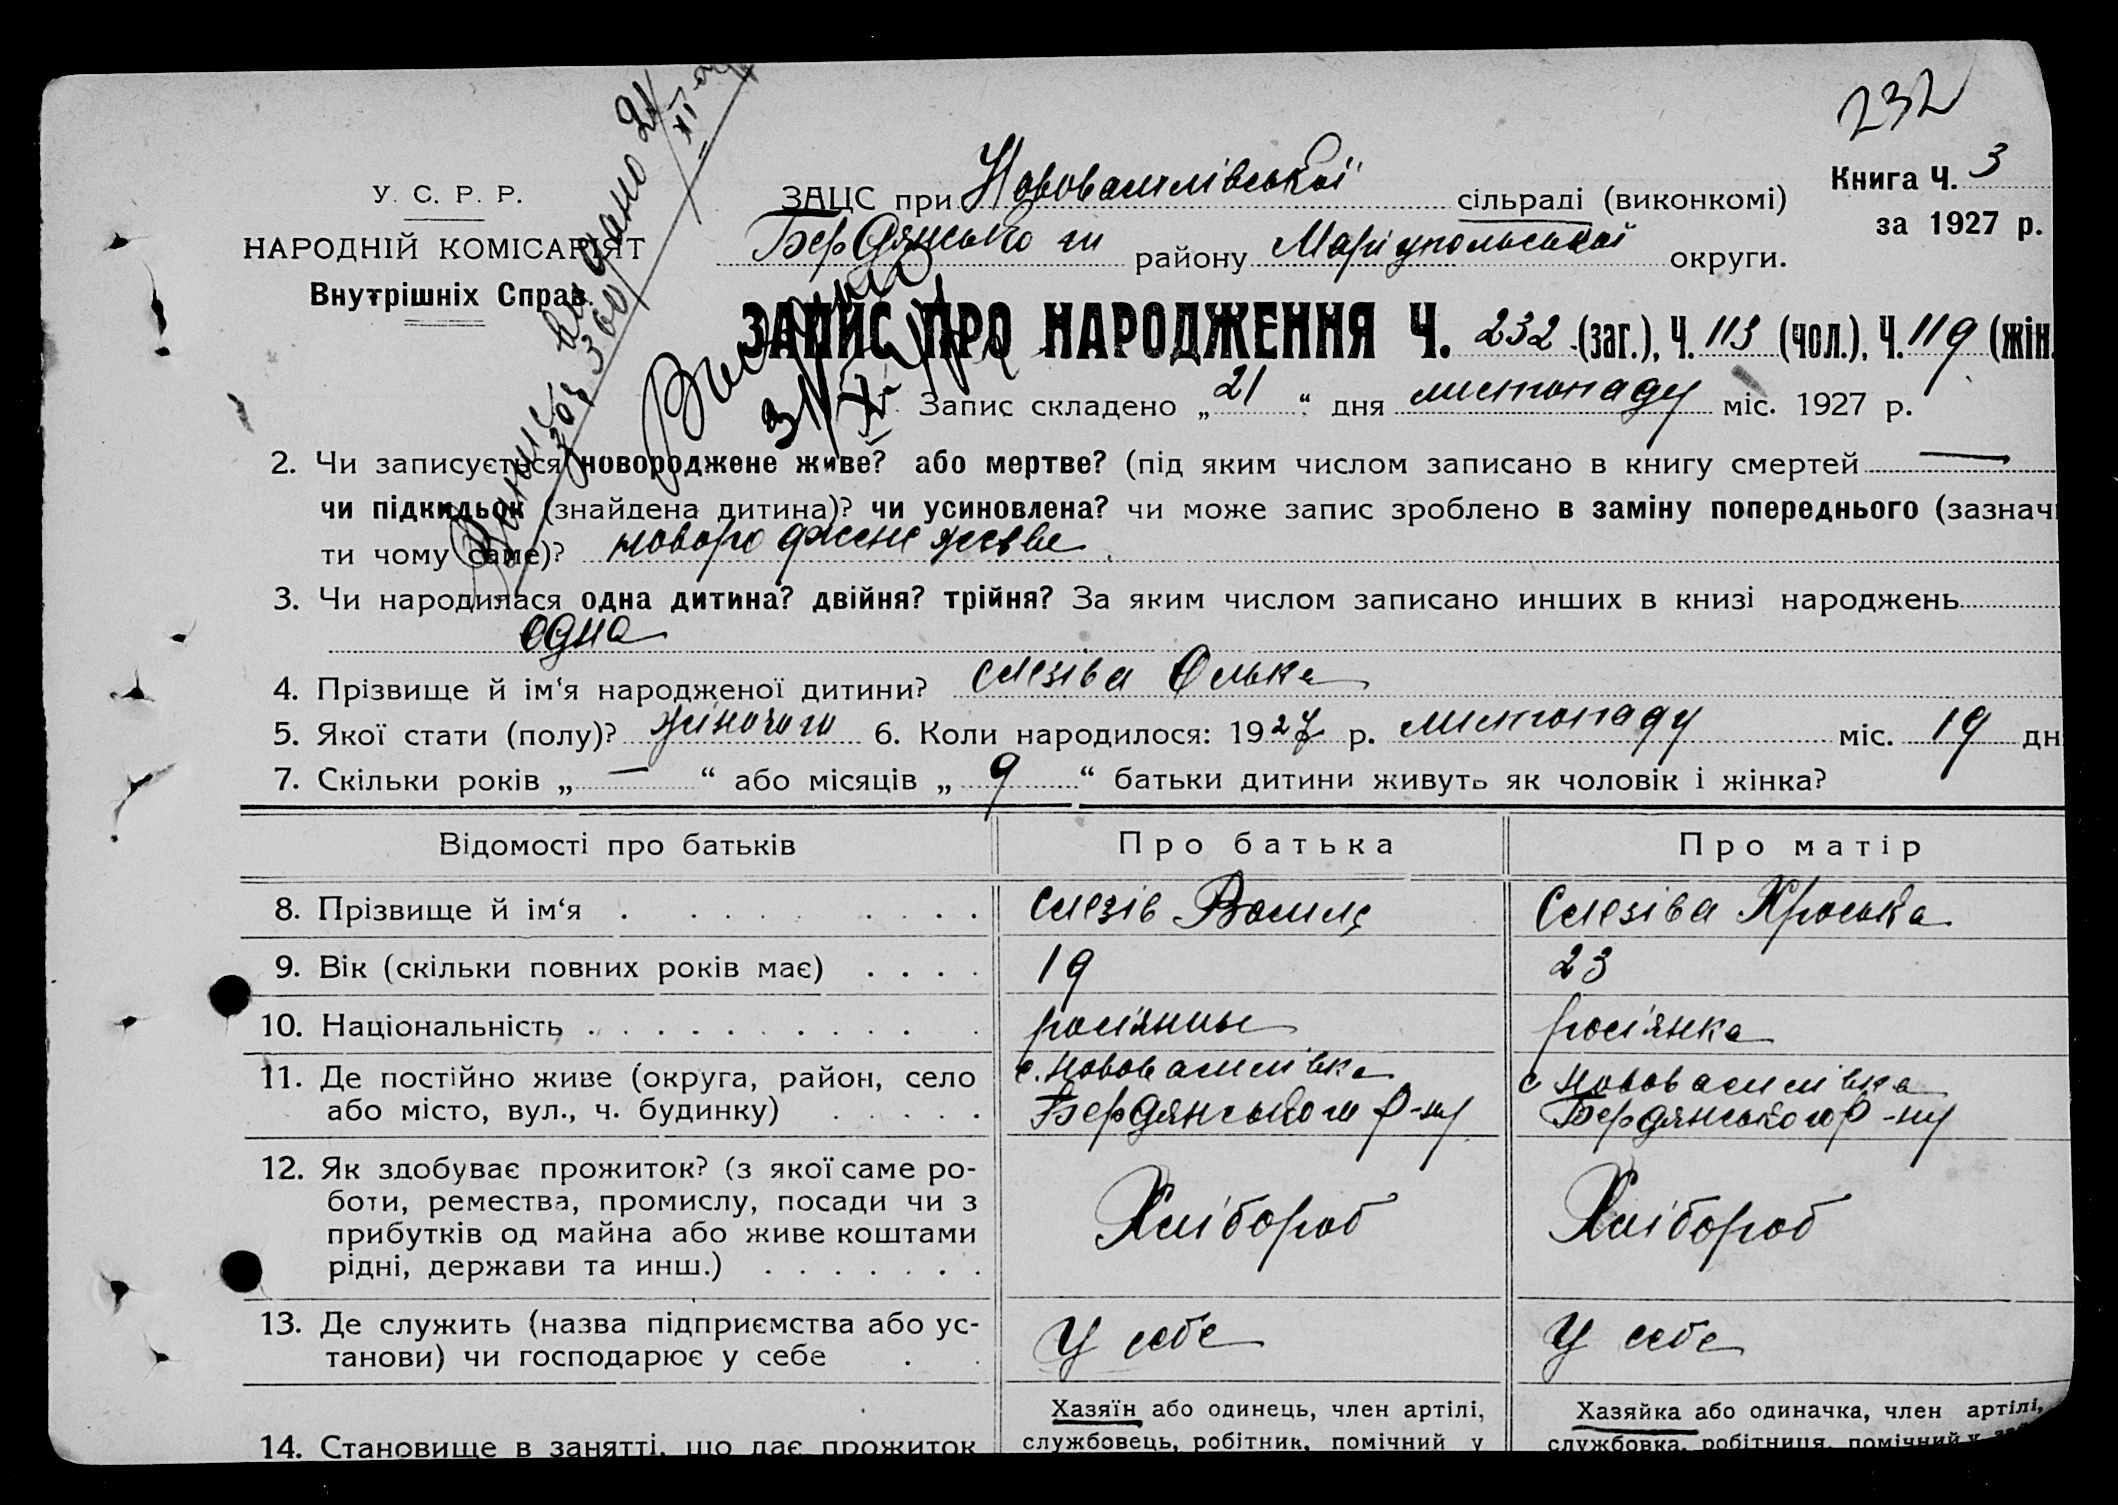 232
У. С. Р. Р.
НАРОДНІЙ КОМІСАРІЯТ
Внутрішніх Справ.
ЗАЦС при Нововасилівської сільраді (виконкомі)
Бердянського району Маріупольської округи.
Книга Ч. 3
за 1927 р.
ЗАПИС ПРО НАРОДЖЕННЯ Ч. 232 (заг.), Ч. 113 (чол.), Ч. 119 (жін.
Запис складено „ 21 “ дня листопаду міс. 1927 р.
2. Чи записується новороджене живе? або мертве? (під яким числом записано в книгу смертей —
чи підкидьок (знайдена дитина)? чи усиновлена? чи може запис зроблено в заміну попереднього (зазначи
ти чому саме)? новороджене живе
3. Чи народилася одна дитина? двійня? трійня? За яким числом записано инших в книзі народжень
одна
4. Прізвище й ім‘я народженої дитини? Слезіва Олька
5. Якої стати (полу)? жіночого 6. Коли народилося: 1927 р. листопаду міс. 19 дн
7. Скільки років „ — “ або місяців „ 9 “ батьки дитини живуть як чоловік і жінка?
Відомості про батьків Про батька Про матір
8. Прізвище й ім‘я Слезів Василь Слезіва Хроська
9. Вік (скільки повних років має) 19 23
10. Національність росіянин росіянка
11. Де постійно живе (округа, район, село с. Нововасилівка с Нововасилівка
або місто, вул., ч. будинку) Бердянського р-ну Бердянського р-ну
12. Як здобуває прожиток? (з якої саме ро-
боти, ремества, промислу, посади чи з
прибутків од майна або живе коштами Хлібороб Хлібороб
рідні, держави та инш.)
13. Де служить (назва підприємства або ус-
танови) чи господарює у себе У себе У себе
Хазяїн або одинець, член артілі, Хазяйка або одиначка, член артілі,
14. Становище в занятті, що дає прожиток службовець, робітник, помічний у службовка, робітниця, помічний у